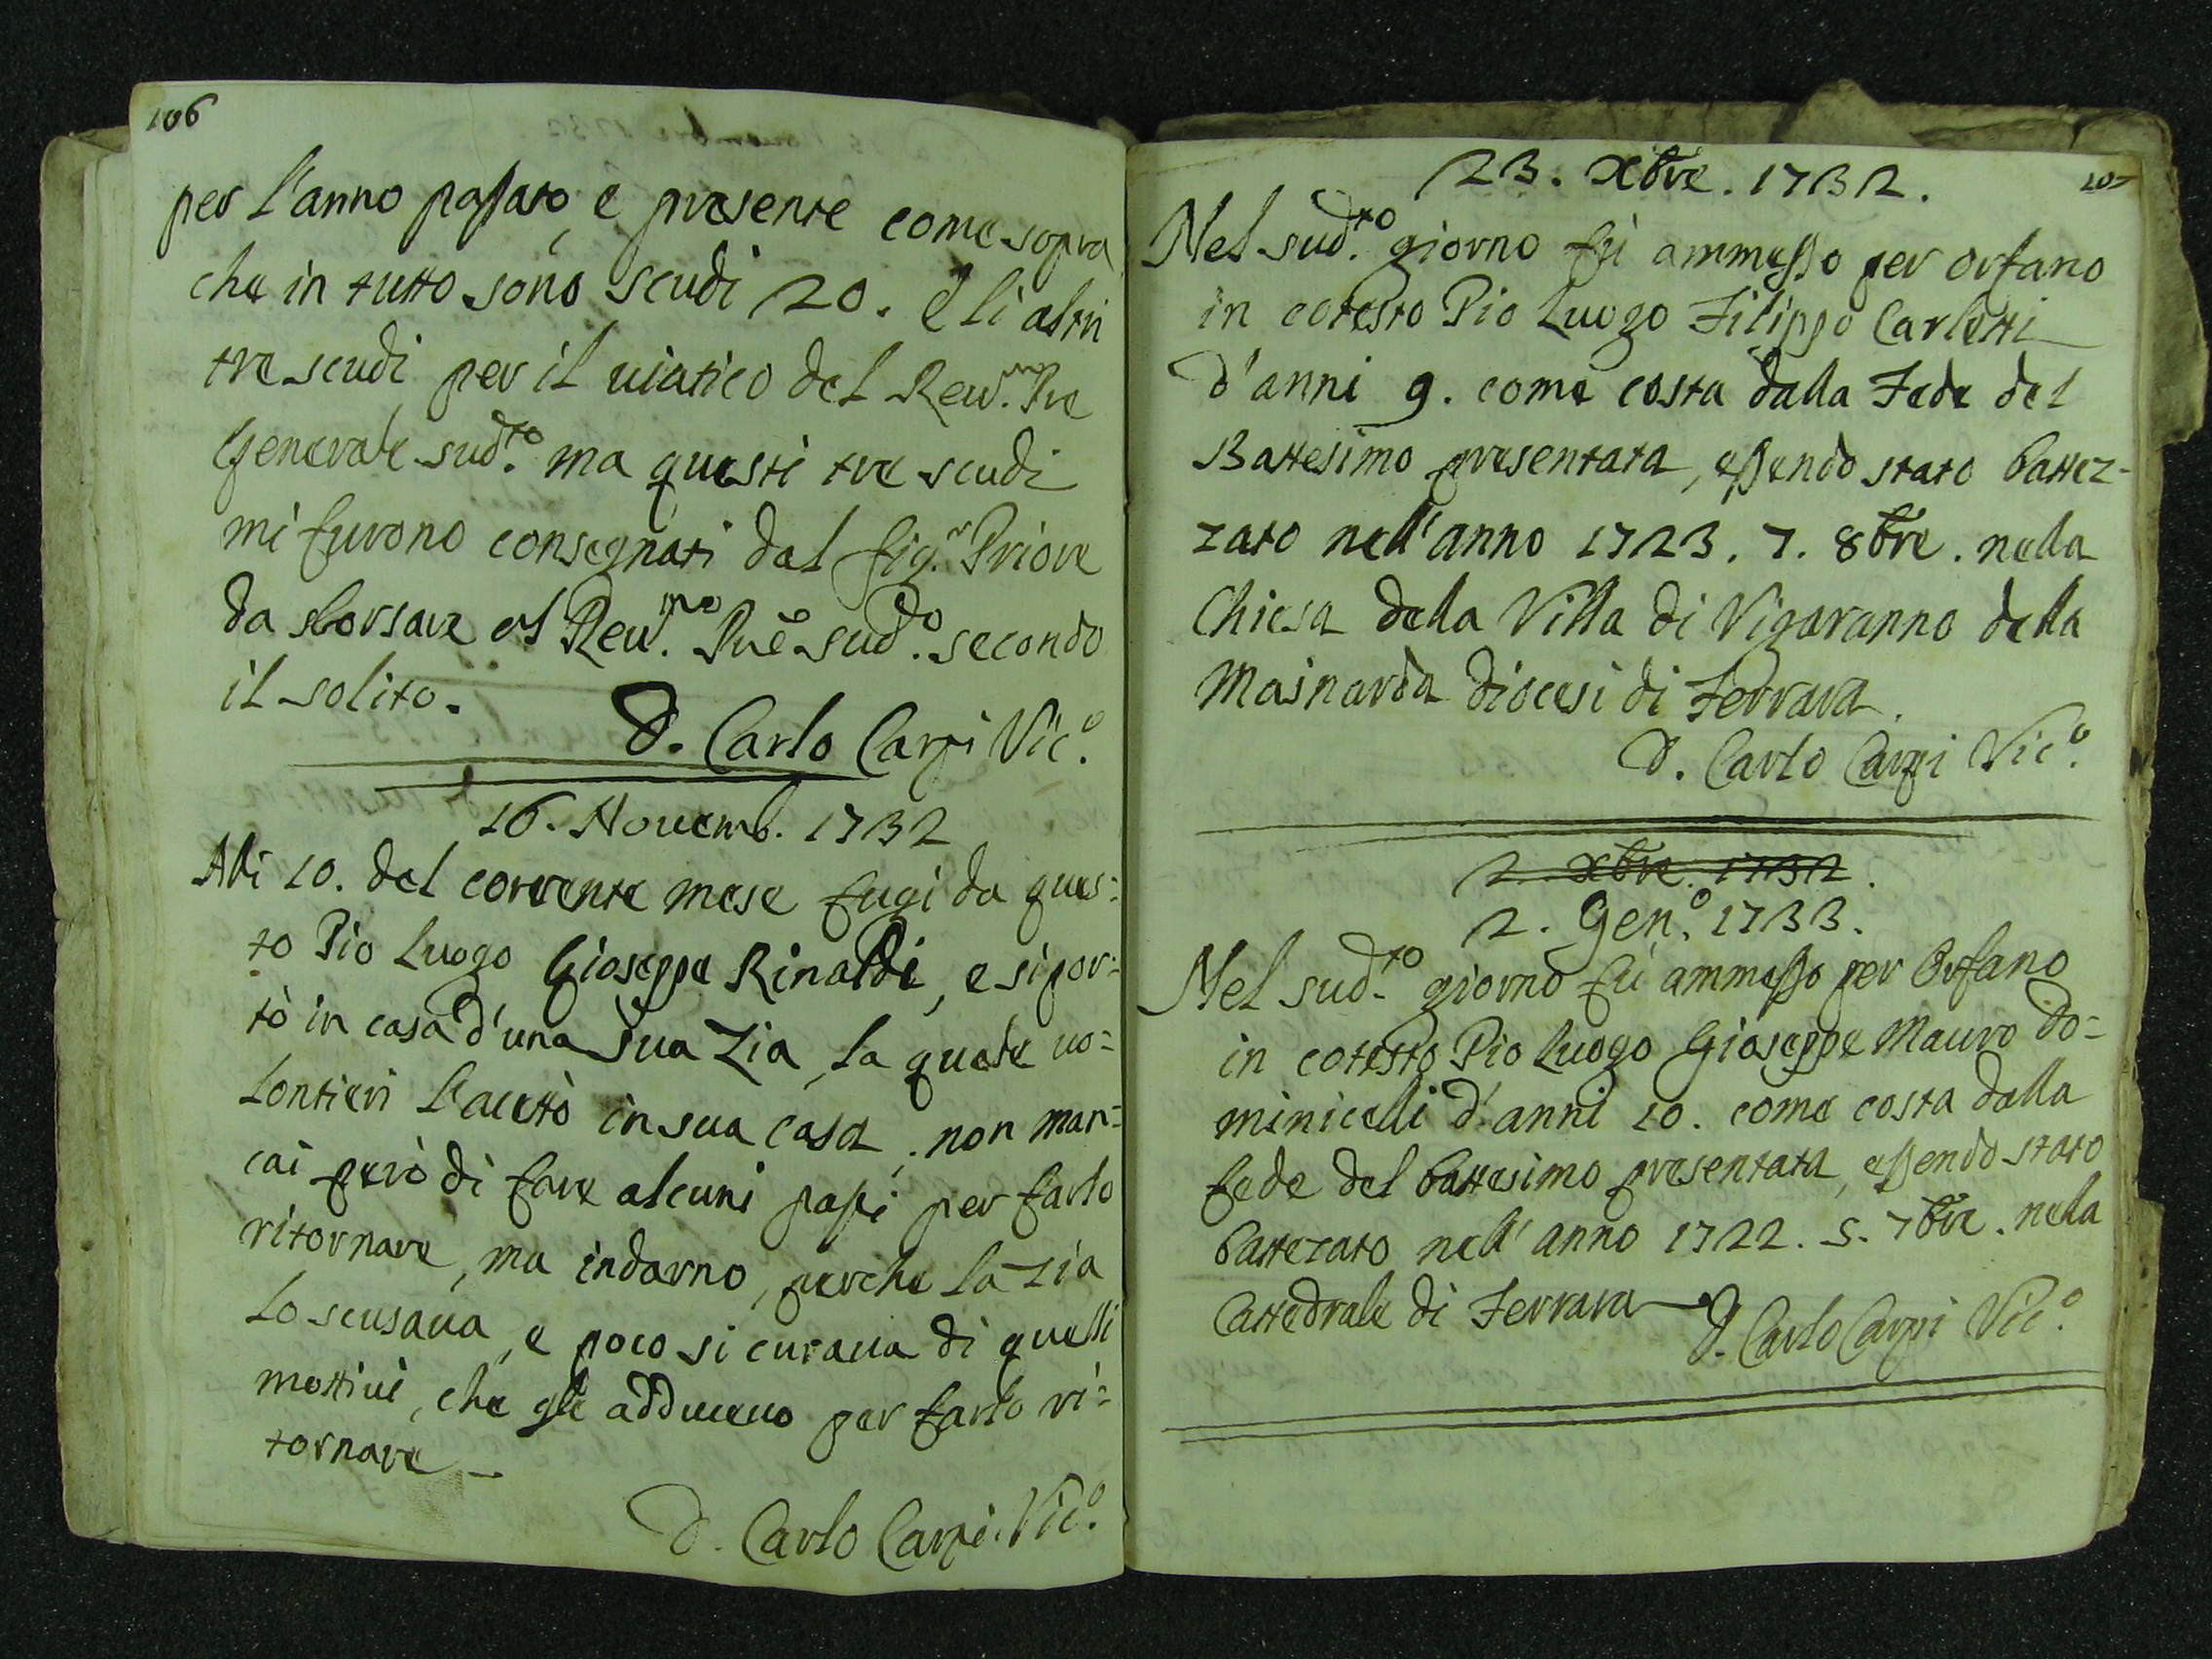 106
per l'anno passato, e presente come sopra
che in tutto sono scudi 20. e li altri
tre scudi per il uiatico del Reu.mo Pre
Generale sud.to ma questi tre scudi
mi furono consegnati dal Sig.r Priore
da sborsare al Reu.mo Pre sud.o secondo
il solito.
D. Carlo Carpi Vic.o
16. Nouemb. 1732
Alli 10. del corrente mese fugi da ques=
to Pio Luogo Gioseppe Rinaldi, e si por=
tò in casa d'una sua Zia, la quale uo=
lontieri l'acettò in sua casa, non man=
cai però di fare alcuni passi per farlo
ritornare, ma indarno, perche la zia
lo scusaua, e poco si curaua di quelli
mottiui, che gli adduceuo per farlo ri=
tornare
D. Carlo Carpi Vic.o
107
23. Xbre. 1732.
Nel sud.to giorno fù ammesso per orfano
in cotesto Pio Luogo Filippo Carletti
d'anni 9. come costa dalla Fede del
Battesimo presentata, essendo stato battez-
zato nell'anno 1723. 7. 8bre. nella
Chiesa della Villa di Vigaranno della
Mainarda diocesi di Ferrara.
D. Carlo Carpi Vic.o
2. xbre. 1732.
2. Gen.o 1733.
Nel sud.to giorno fù ammesso per Orfano
in cotesto Pio Luogo Gioseppe Mauro Do=
minicelli d'anni 10. come costa dalla
fede del battesimo presentata, essendo stato
battezato nell'anno 1722. 5. 7bre. nella
Cattedrale di Ferrara
D. Carlo Carpi Vic.o